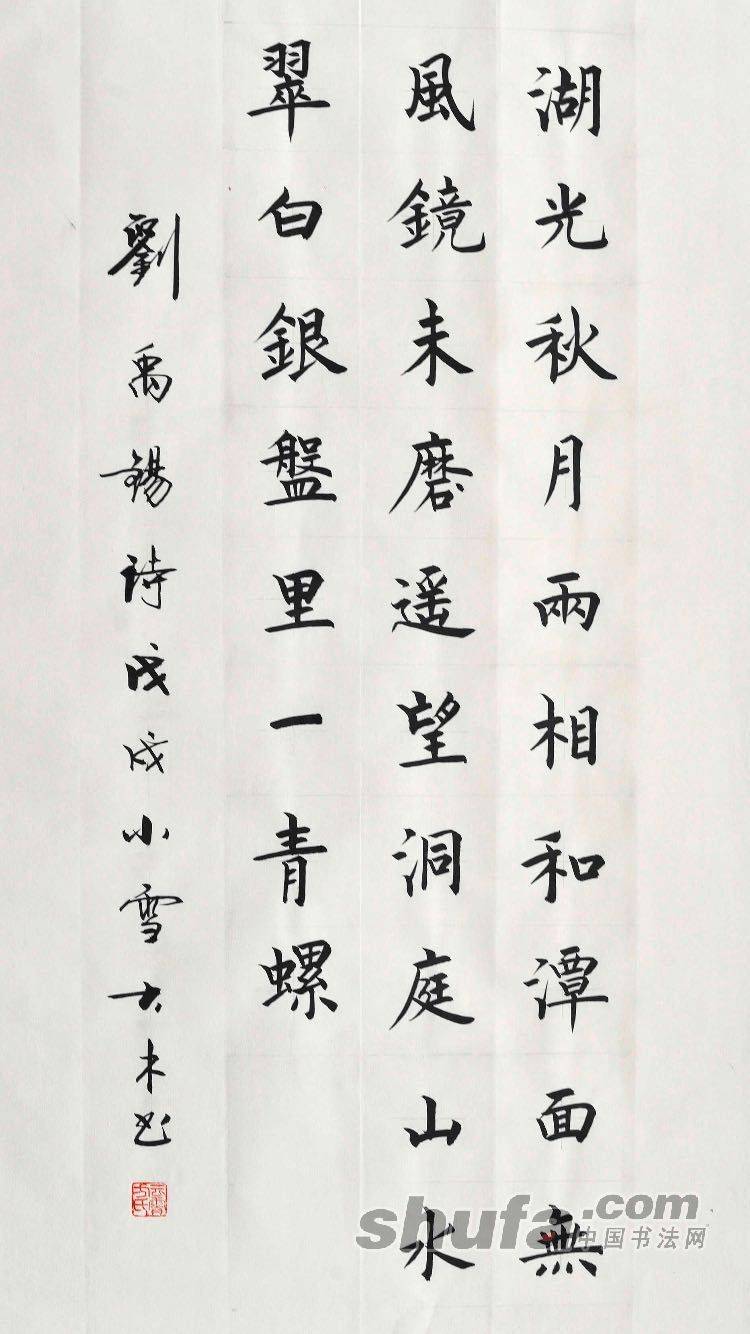 湖光秋月兩相和潭面無
風鏡未磨遥望洞庭山水
翠白銀盤里一青螺
劉禹錫詩戊戌小雪大木书
shufa.com
中国书法网